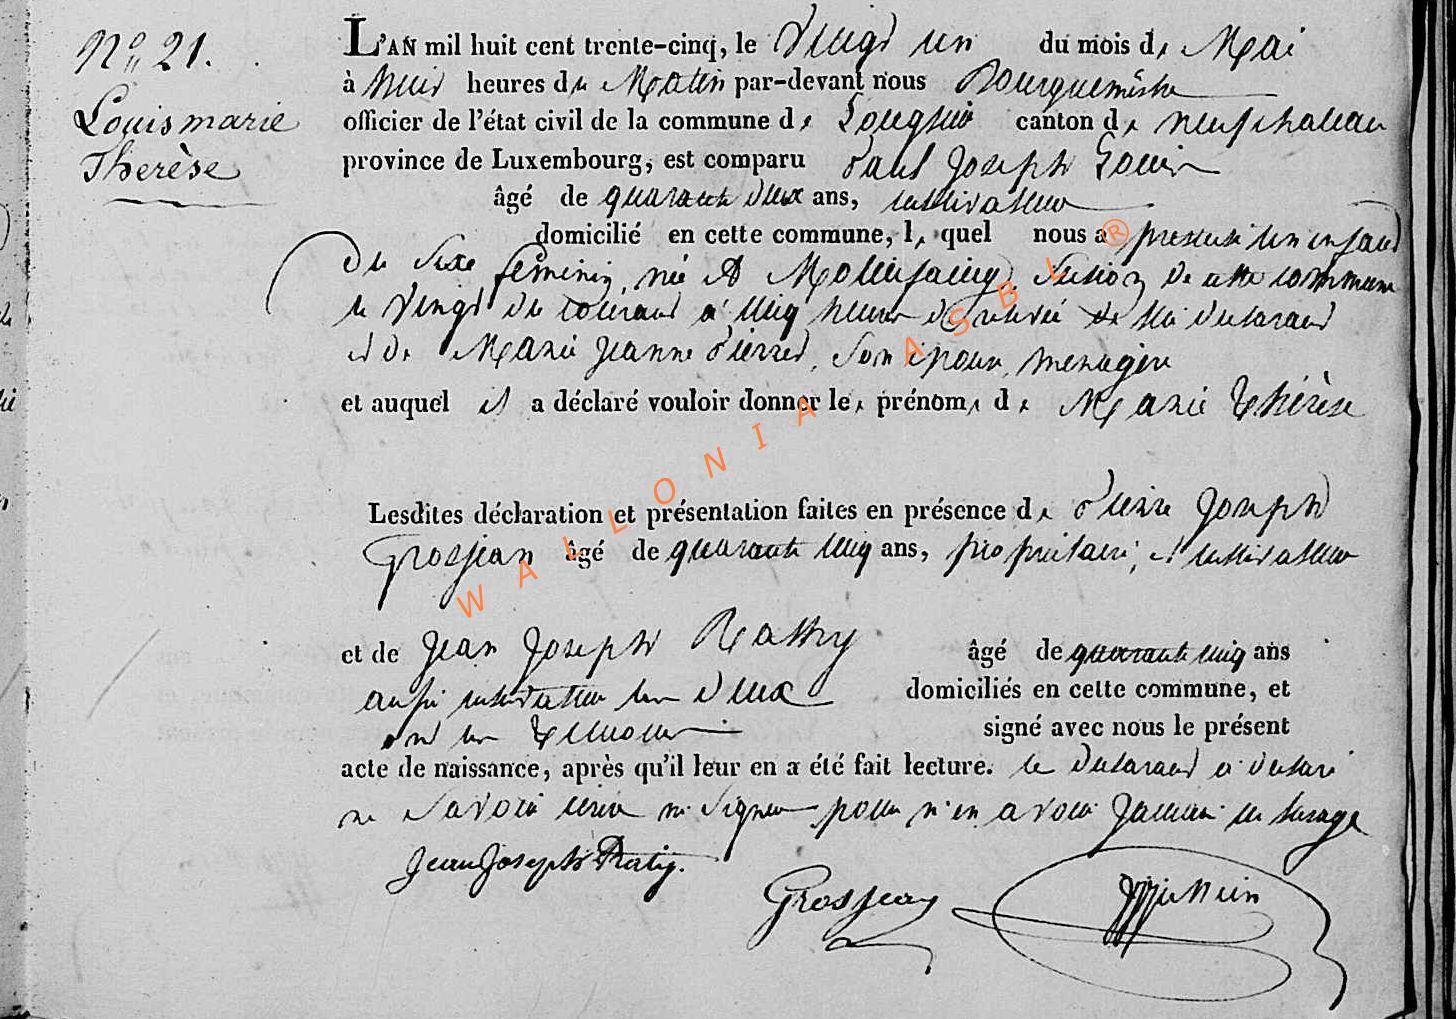 N° 21.
Louis marie
Therèse
L'AN mil huit cent trente-cinq, le Vingt un du mois de Mai
à huit heures du Matin par-devant nous Bourguemêstre
officier de l'état civil de la commune de Longlier canton de neufchateau
province de Luxembourg, est comparu Paul Joseph Louis
âgé de quarante deux ans, cultivateur
domicilié en cette commune, lequel nous a presenté un enfant
du sexe féminin, née à Molinfaing, section de cette commune
le vingt du courant à cinq heures de relevée de lui declarant
et de Marie Jeanne Pierret, son epouse, menagère
et auquel il a déclaré vouloir donner les prénoms de Marie Thérèse
Lesdites déclaration et présentation faites en présence de Pierre Joseph
Grosjean âgé de quarante cinq ans, propriétaire, et cultivateur
et de Jean Joseph Rathy âgé de quarante cinq ans
aussi cultivateur les deux domiciliés en cette commune, et
ont les temoins signé avec nous le présent
acte de naissance, après qu'il leur en a été fait lecture. le declarant a declaré
ne savoir ecrire ni signer pour n'en avoir jamais eu l'usage
Jean Joseph Ratiy.
Grosjean
WALLONIA ASBL ®